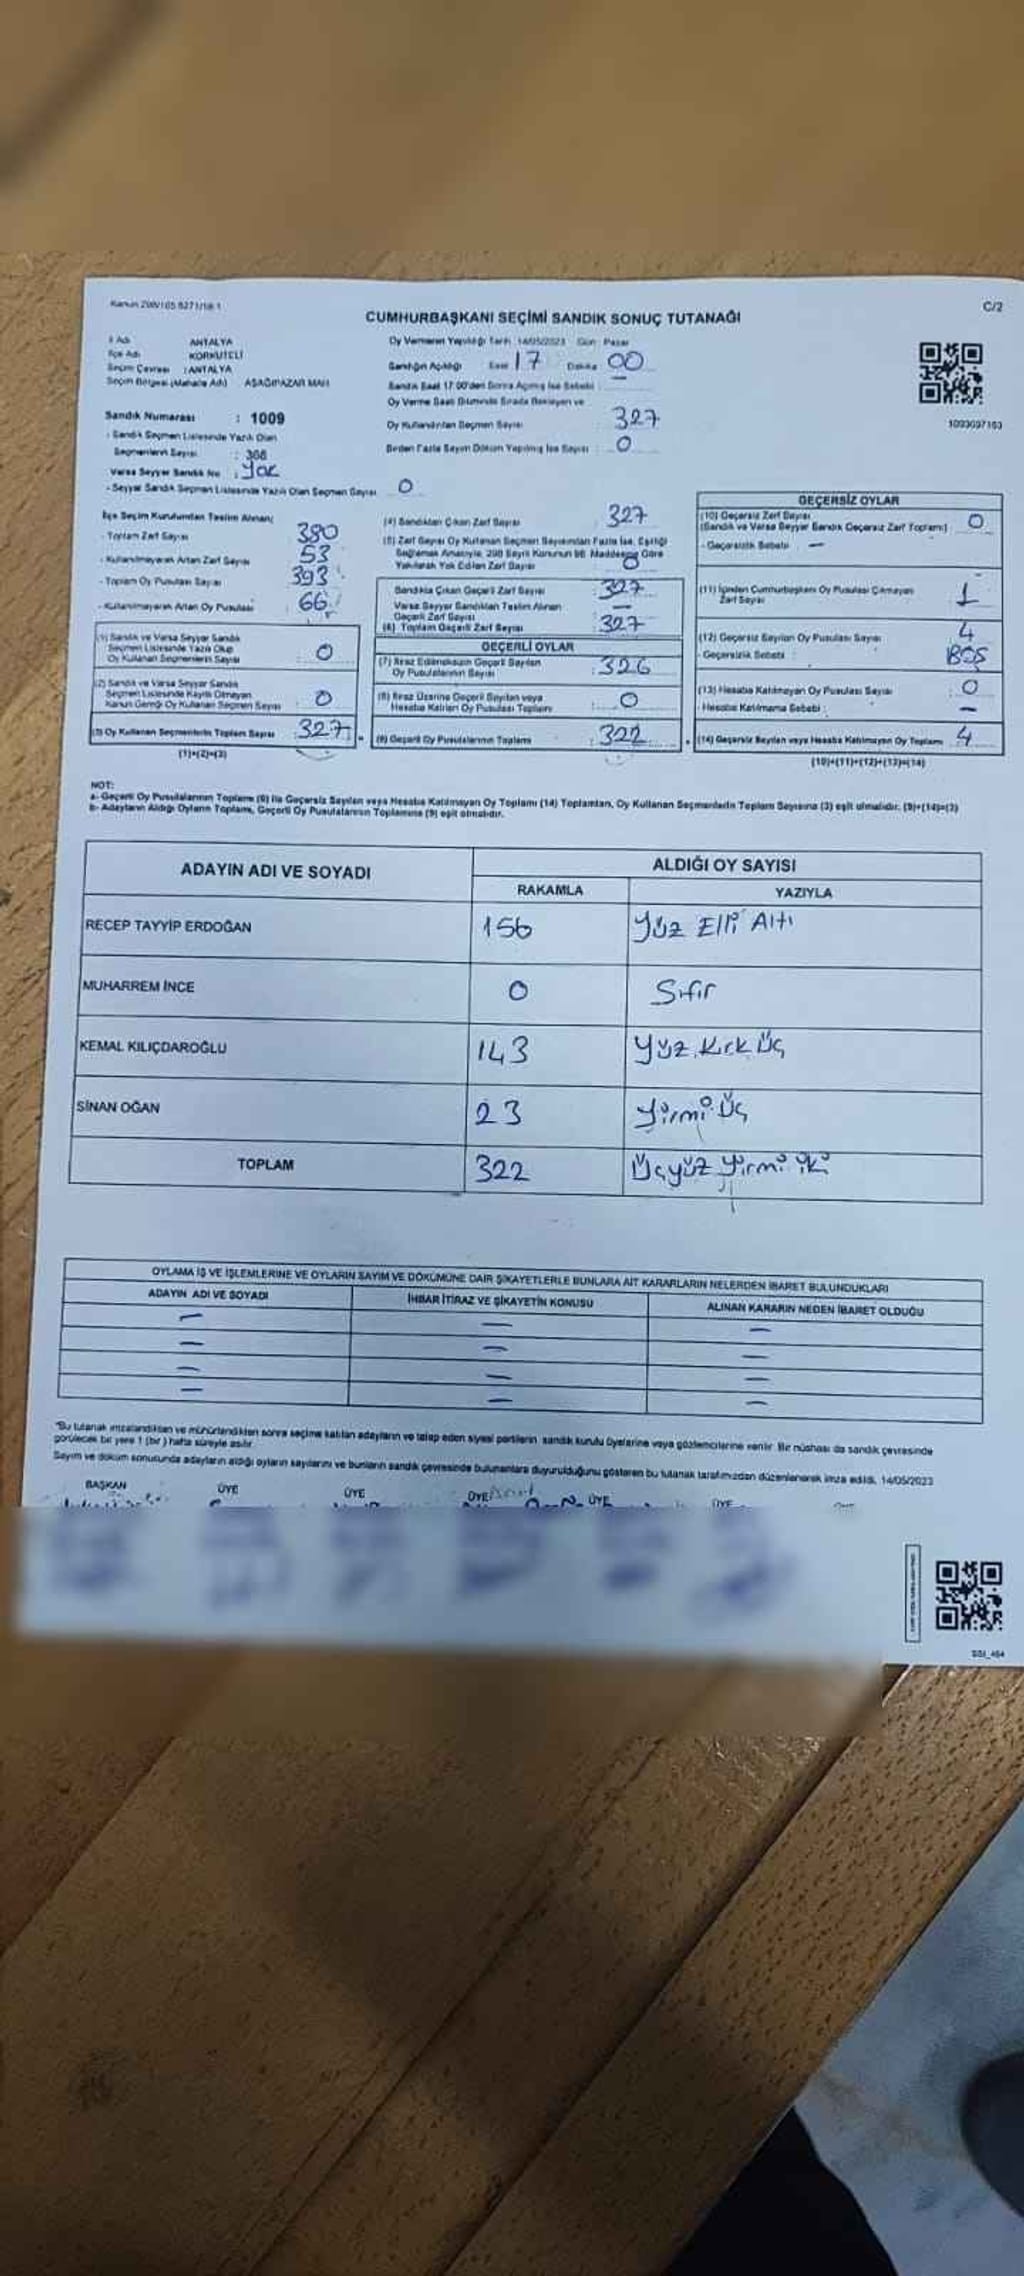 C/2
CUMHURBAŞKANI SEÇİMİ SANDIK SONUÇ TUTANAĞI
İl Adı ANTALYA
İlçe Adı KORKUTELİ
Seçim Çevresi : ANTALYA
Seçim Bölgesi (Mahalle Adı) AŞAĞIPAZAR MAH
Oy Vermenin Yapıldığı Tarih 14/05/2023 Gün : Pazar
Sandığın Açıldığı Saat 17 Dakika 00
Sandık Saat 17:00'den Sonra Açılmış İse Sebebi : —
Oy Verme Saati Bitiminde Sırada Bekleyen ve
Oy Kullandırılan Seçmen Sayısı : 327
Birden Fazla Sayım Döküm Yapılmış İse Sayısı : 0
1003037163
Sandık Numarası : 1009
- Sandık Seçmen Listesinde Yazılı Olan
Seçmenlerin Sayısı : 368
Varsa Seyyar Sandık No : yok
- Seyyar Sandık Seçmen Listesinde Yazılı Olan Seçmen Sayısı 0
İlçe Seçim Kurulundan Teslim Alınan;
- Toplam Zarf Sayısı 380
- Kullanılmayarak Artan Zarf Sayısı 53
- Toplam Oy Pusulası Sayısı 393
- Kullanılmayarak Artan Oy Pusulası 66
(1) Sandık ve Varsa Seyyar Sandık
Seçmen Listesinde Yazılı Olup
Oy Kullanan Seçmenlerin Sayısı 0
(2) Sandık ve Varsa Seyyar Sandık
Seçmen Listesinde Kayıtlı Olmayan
Kanun Gereği Oy Kullanan Seçmen Sayısı 0
(3) Oy Kullanan Seçmenlerin Toplam Sayısı : 327
(1)+(2)=(3)
(4) Sandıktan Çıkan Zarf Sayısı 327
(5) Zarf Sayısı Oy Kullanan Seçmen Sayısından Fazla İse, Eşitliği
Sağlamak Amacıyla, 298 Sayılı Kanunun 98. Maddesine Göre
Yakılarak Yok Edilen Zarf Sayısı 0
Sandıkta Çıkan Geçerli Zarf Sayısı : 327
Varsa Seyyar Sandıktan Teslim Alınan
Geçerli Zarf Sayısı —
(6) Toplam Geçerli Zarf Sayısı : 327
GEÇERLİ OYLAR
(7) İtiraz Edilmeksizin Geçerli Sayılan
Oy Pusulalarının Sayısı : 326
(8) İtiraz Üzerine Geçerli Sayılan veya
Hesaba Katılan Oy Pusulası Toplamı : 0
(9) Geçerli Oy Pusulalarının Toplamı : 322
GEÇERSİZ OYLAR
(10) Geçersiz Zarf Sayısı
(Sandık ve Varsa Seyyar Sandık Geçersiz Zarf Toplamı) : 0
- Geçersizlik Sebebi : —
(11) İçinden Cumhurbaşkanı Oy Pusulası Çıkmayan
Zarf Sayısı 1
(12) Geçersiz Sayılan Oy Pusulası Sayısı 4
- Geçersizlik Sebebi : BOŞ
(13) Hesaba Katılmayan Oy Pusulası Sayısı 0
- Hesaba Katılmama Sebebi : —
(14) Geçersiz Sayılan veya Hesaba Katılmayan Oy Toplamı 4
(10)+(11)+(12)+(13)=(14)
NOT:
a- Geçerli Oy Pusulalarının Toplamı (9) ile Geçersiz Sayılan veya Hesaba Katılmayan Oy Toplamı (14) Toplamları, Oy Kullanan Seçmenlerin Toplam Sayısına (3) eşit olmalıdır. (9)+(14)=(3)
b- Adayların Aldığı Oyların Toplamı, Geçerli Oy Pusulalarının Toplamına (9) eşit olmalıdır.
ADAYIN ADI VE SOYADI ALDIĞI OY SAYISI
RAKAMLA YAZIYLA
RECEP TAYYİP ERDOĞAN 156 Yüz Elli Altı
MUHARREM İNCE 0 Sıfır
KEMAL KILIÇDAROĞLU 143 Yüz Kırk Üç
SİNAN OĞAN 23 Yirmi Üç
TOPLAM 322 Üçyüz Yirmi iki
OYLAMA İŞ VE İŞLEMLERİNE VE OYLARIN SAYIM VE DÖKÜMÜNE DAİR ŞİKAYETLERLE BUNLARA AİT KARARLARIN NELERDEN İBARET BULUNDUKLARI
ADAYIN ADI VE SOYADI İHBAR İTİRAZ VE ŞİKAYETİN KONUSU ALINAN KARARIN NEDEN İBARET OLDUĞU
— — —
— — —
— — —
— — —
"Bu tutanak imzalandıktan ve mühürlendikten sonra seçime katılan adayların ve talep eden siyasi partilerin sandık kurulu üyelerine veya gözlemcilerine verilir. Bir nüshası da sandık çevresinde
görülecek bir yere 1 (bir) hafta süreyle asılır.
Sayım ve döküm sonucunda adayların aldığı oyların sayılarını ve bunların sandık çevresinde bulunanlara duyurulduğunu gösteren bu tutanak tarafımızdan düzenlenerek imza edildi. 14/05/2023
BAŞKAN ÜYE ÜYE ÜYE ÜYE ÜYE